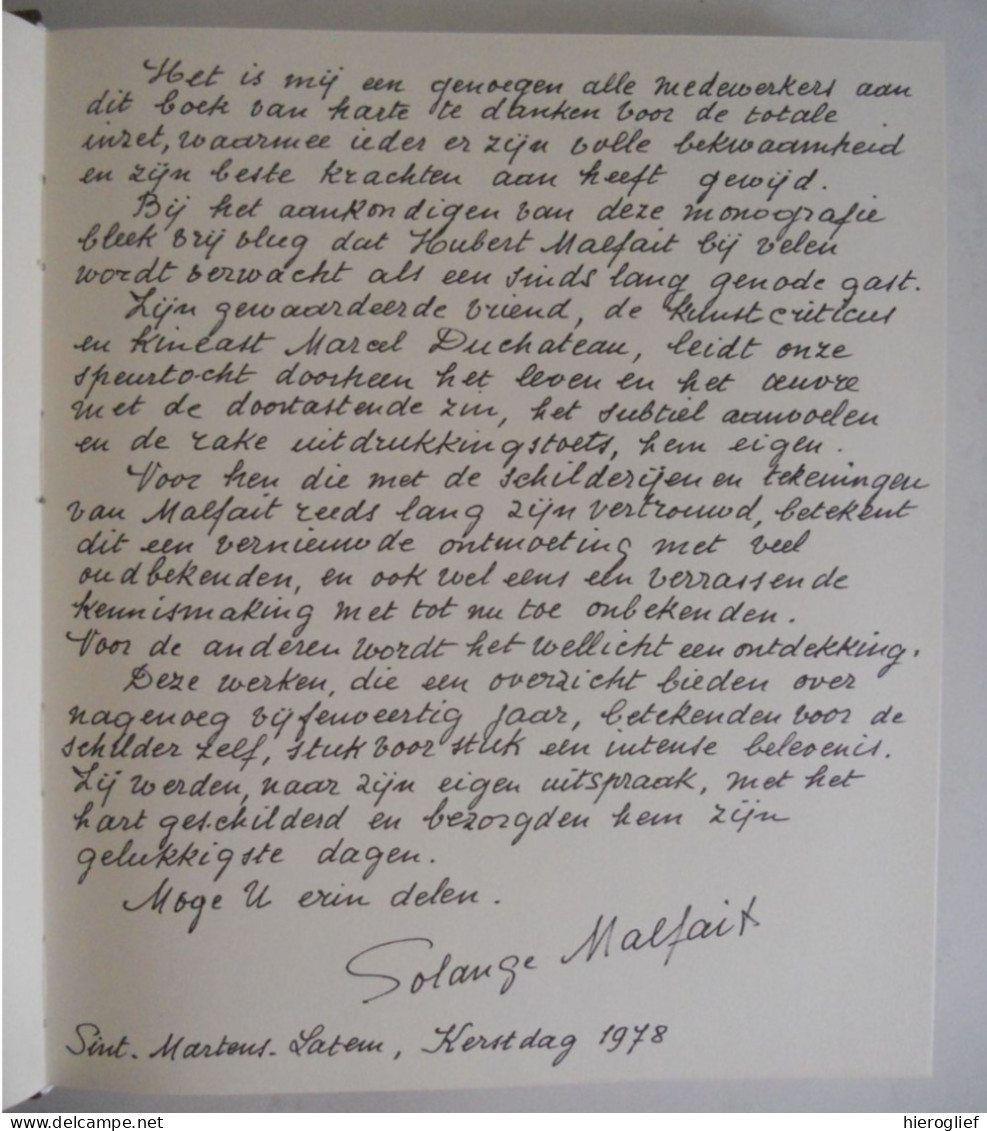 Het is mij een genoegen alle medewerkers aan
dit boek van harte te danken voor de totale
inzet, waarmee ieder er zijn volle bekwaamheid
en zijn beste krachten aan heeft gewijd.
Bij het aankondigen van deze monografie
bleek vrij vlug dat Hubert Malfait bij velen
wordt verwacht als een sinds lang genode gast.
Zijn gewaardeerde vriend, de kunstcriticus
en kineast Marcel Duchateau, leidt onze
speurtocht doorheen het leven en het œuvre
met de doortastende zin, het subtiel aanvoelen
en de rake uitdrukkingstoets, hem eigen.
Voor hen die met de schilderijen en tekeningen
van Malfait reeds lang zijn vertrouwd, betekent
dit een vernieuwde ontmoeting met veel
oudbekenden, en ook wel eens een verrassende
kennismaking met tot nu toe onbekenden.
Voor de anderen wordt het wellicht een ontdekking.
Deze werken, die een overzicht bieden over
nagenoeg vijfenveertig jaar, betekenden voor de
schilder zelf, stuk voor stuk een intense belevenis.
Zij werden, naar zijn eigen uitspraak, met het
hart geschilderd en bezorgden hem zijn
gelukkigste dagen.
Moge U erin delen.
Solange Malfait
Sint-Martens-Latem, Kerstdag 1978
delcampe.net
hieroglief